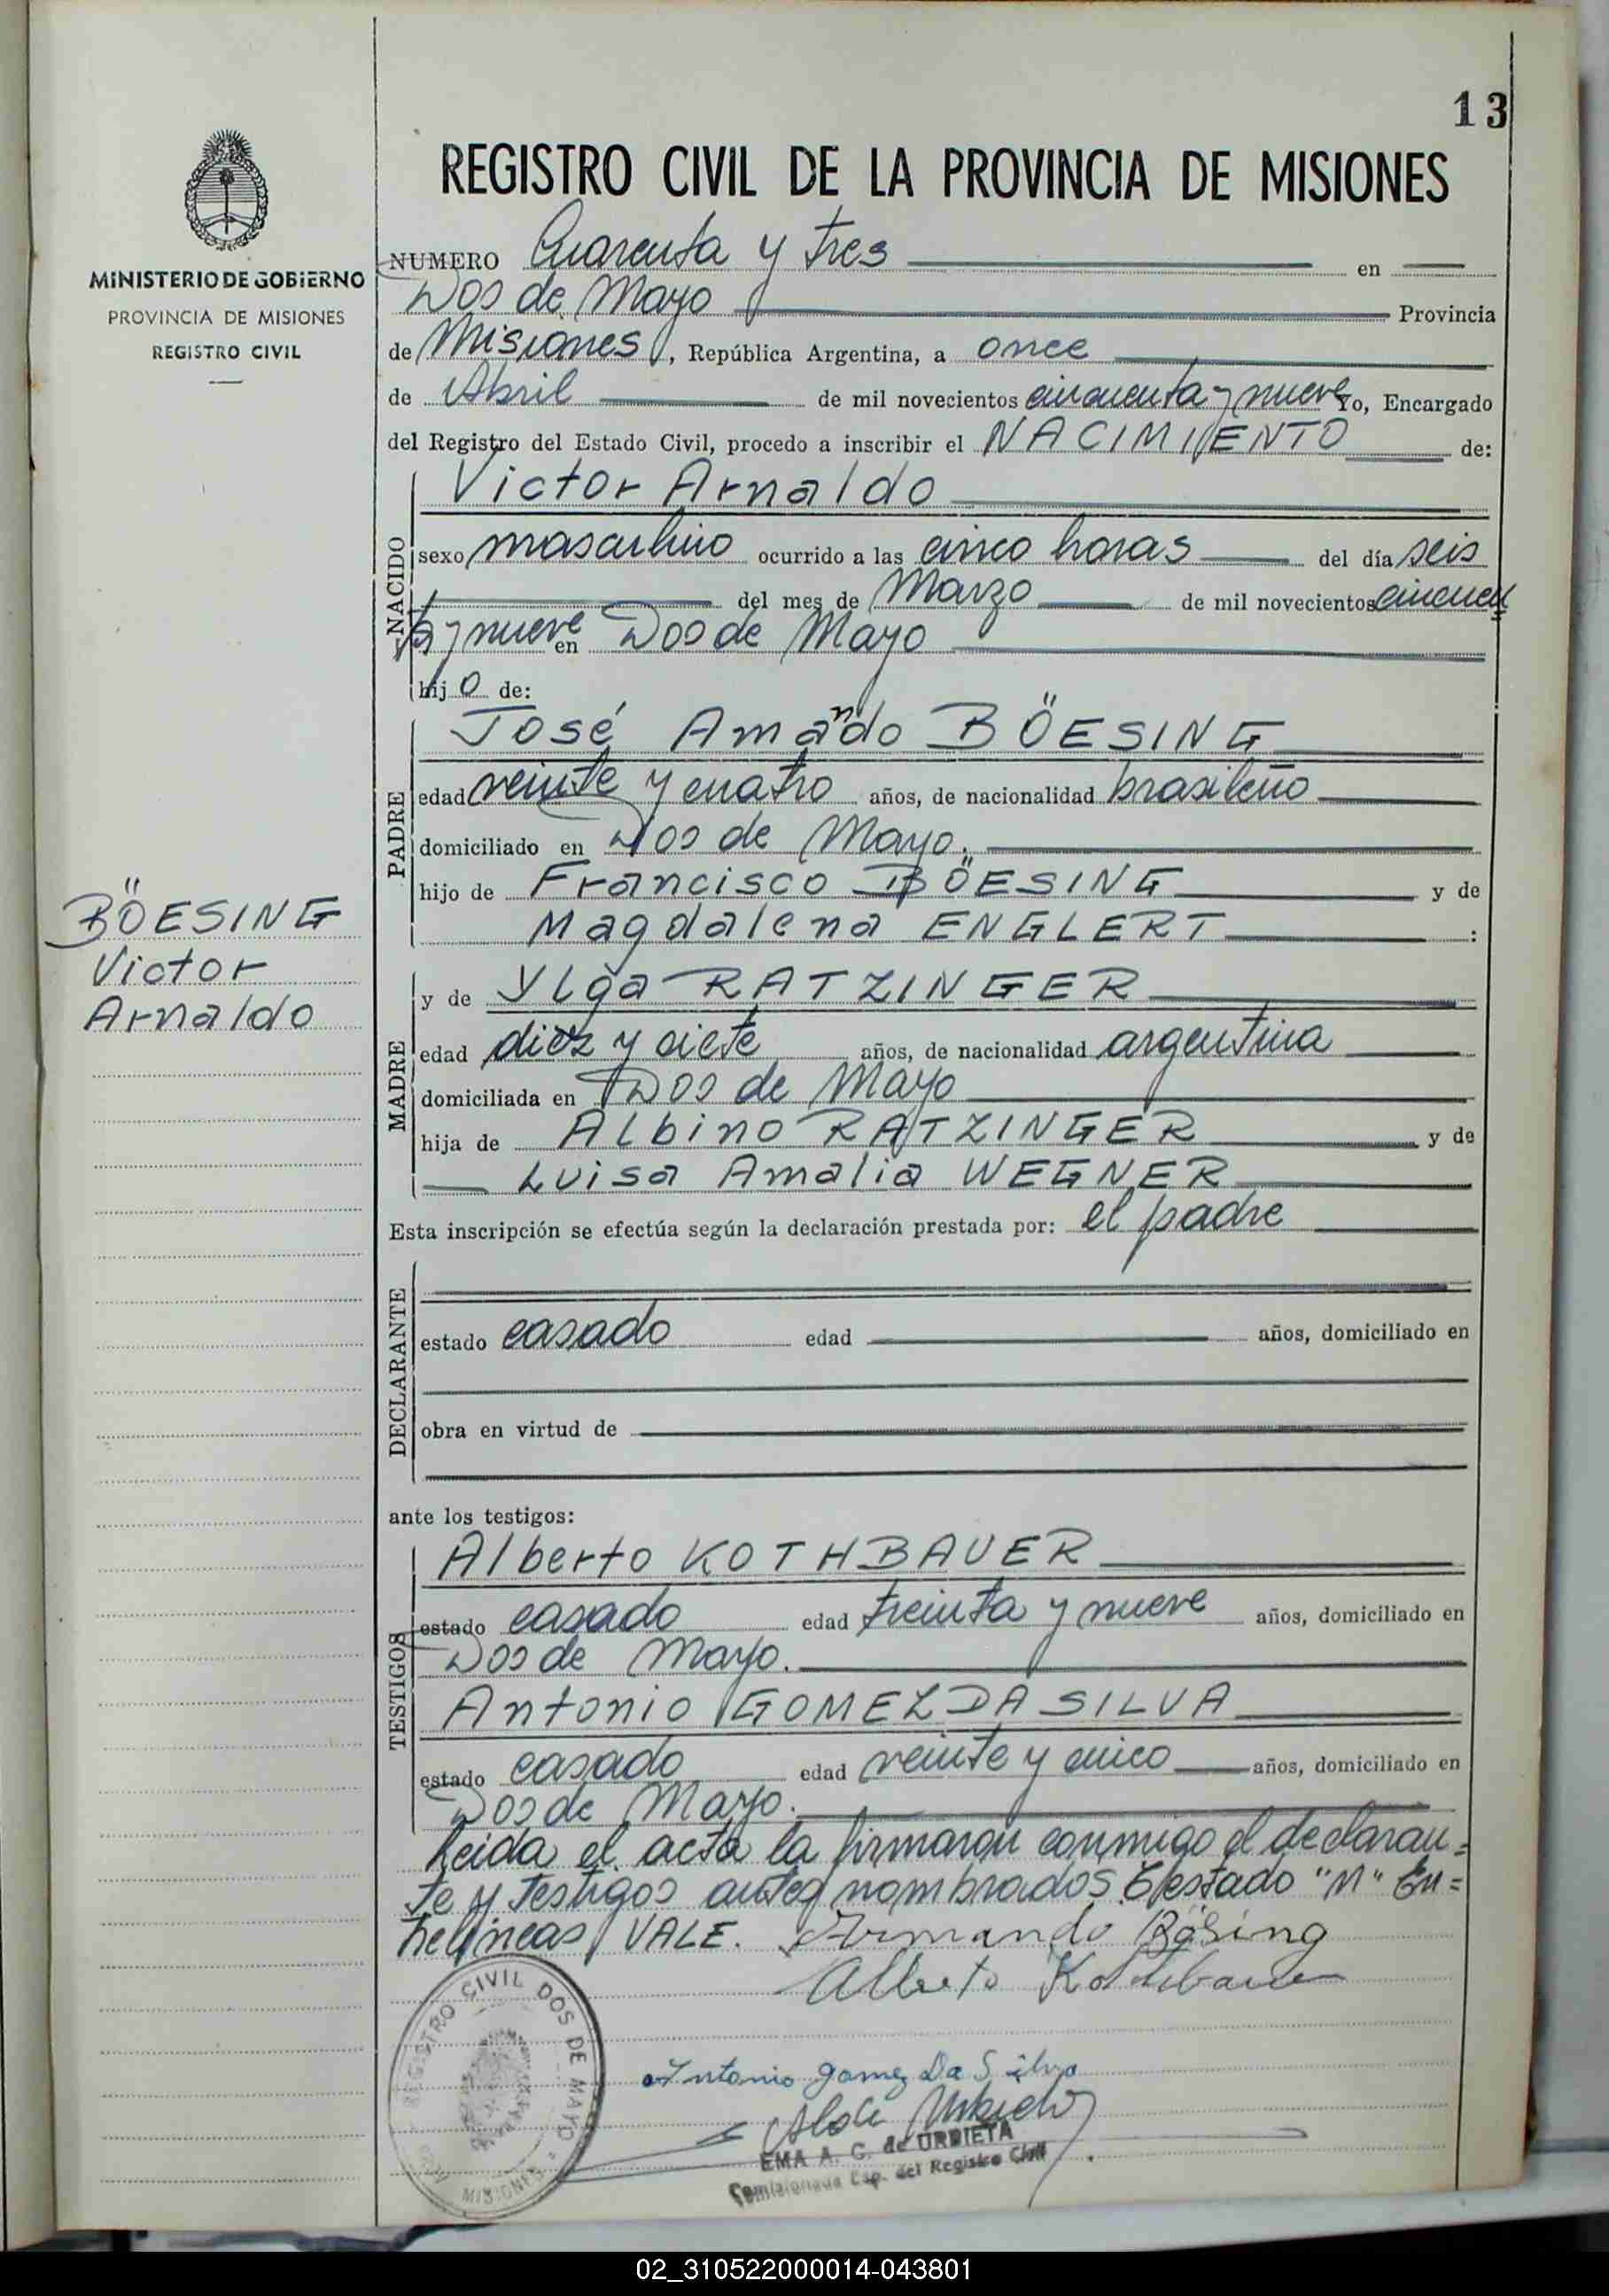 13
REGISTRO CIVIL DE LA PROVINCIA DE MISIONES
MINISTERIO DE GOBIERNO
PROVINCIA DE MISIONES
REGISTRO CIVIL
NUMERO Cuarenta y tres en
Dos de Mayo Provincia
de Misiones, República Argentina, a once
de Abril de mil novecientos cincuenta y nueve Yo, Encargado
del Registro del Estado Civil, procedo a inscribir el NACIMIENTO de:
NACIDO
Victor Arnaldo
sexo masculino ocurrido a las cinco horas del día seis
del mes de Marzo de mil novecientos cincuen
ta y nueve en Dos de Mayo
hijo de:
PADRE
José Amando BÖESING
edad veinte y cuatro años, de nacionalidad brasileño
domiciliado en Dos de Mayo.
hijo de Francisco BÖESING y de
Magdalena ENGLERT :
BÖESING
Victor
Arnaldo
MADRE
y de Ylga RATZINGER
edad diez y siete años, de nacionalidad argentina
domiciliada en Dos de Mayo
hija de Albino RATZINGER y de
Luisa Amalia WEGNER
Esta inscripción se efectúa según la declaración prestada por: el padre
DECLARANTE
estado casado edad años, domiciliado en
obra en virtud de
ante los testigos:
TESTIGOS
Alberto KOTHBAUER
estado casado edad treinta y nueve años, domiciliado en
Dos de Mayo.
Antonio GOMEZ DA SILVA
estado casado edad veinte y cinco años, domiciliado en
Dos de Mayo.
Leida el acta la firmaron conmigo el declaran=
te y testigos antes nombrados. "n" En=
trelineas VALE. Armando Bösing
Alberto Kothbauer
Antonio gomez Da Silva
EMA A. G. de URBIETA
Comisionada Esp. del Registro Civil
REGISTRO CIVIL DOS DE MAYO
MISIONES
02_310522000014-043801